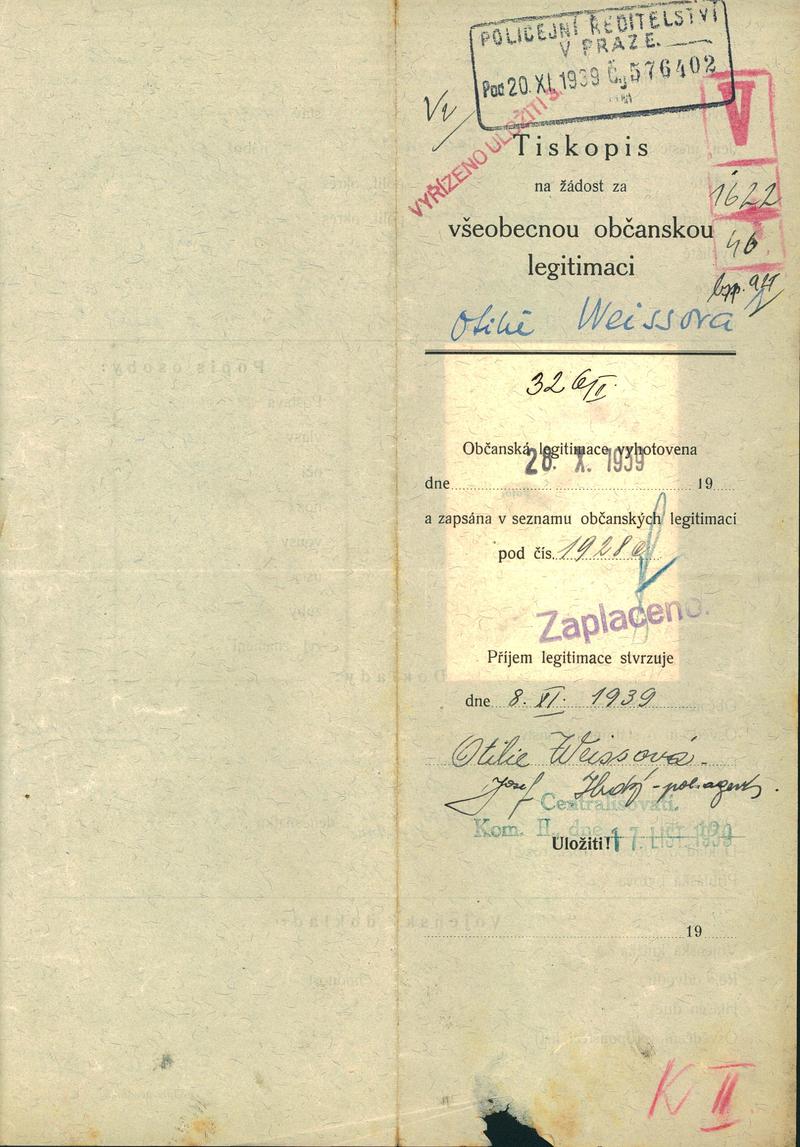 POLICEJNÍ ŘEDITELSTVÍ
V PRAZE.
Poč 20. XI. 1939 Čj 576402
VYŘÍZENO ULOŽITI
V
Tiskopis
na žádost za
1622
všeobecnou občanskou
46
legitimaci
Otilie Weissová
32 6/II.
Občanská legitimace vyhotovena
28. X. 1939
dne 19
a zapsána v seznamu občanských legitimací
pod čís. 1928
Zaplaceno.
Příjem legitimace stvrzuje
dne 8. XI. 1939
Otilie Weissová.
Josef - pol. agent.
Centralisovati.
Kom. II, dne 17. LIST. 1939
Uložiti!
19
K II